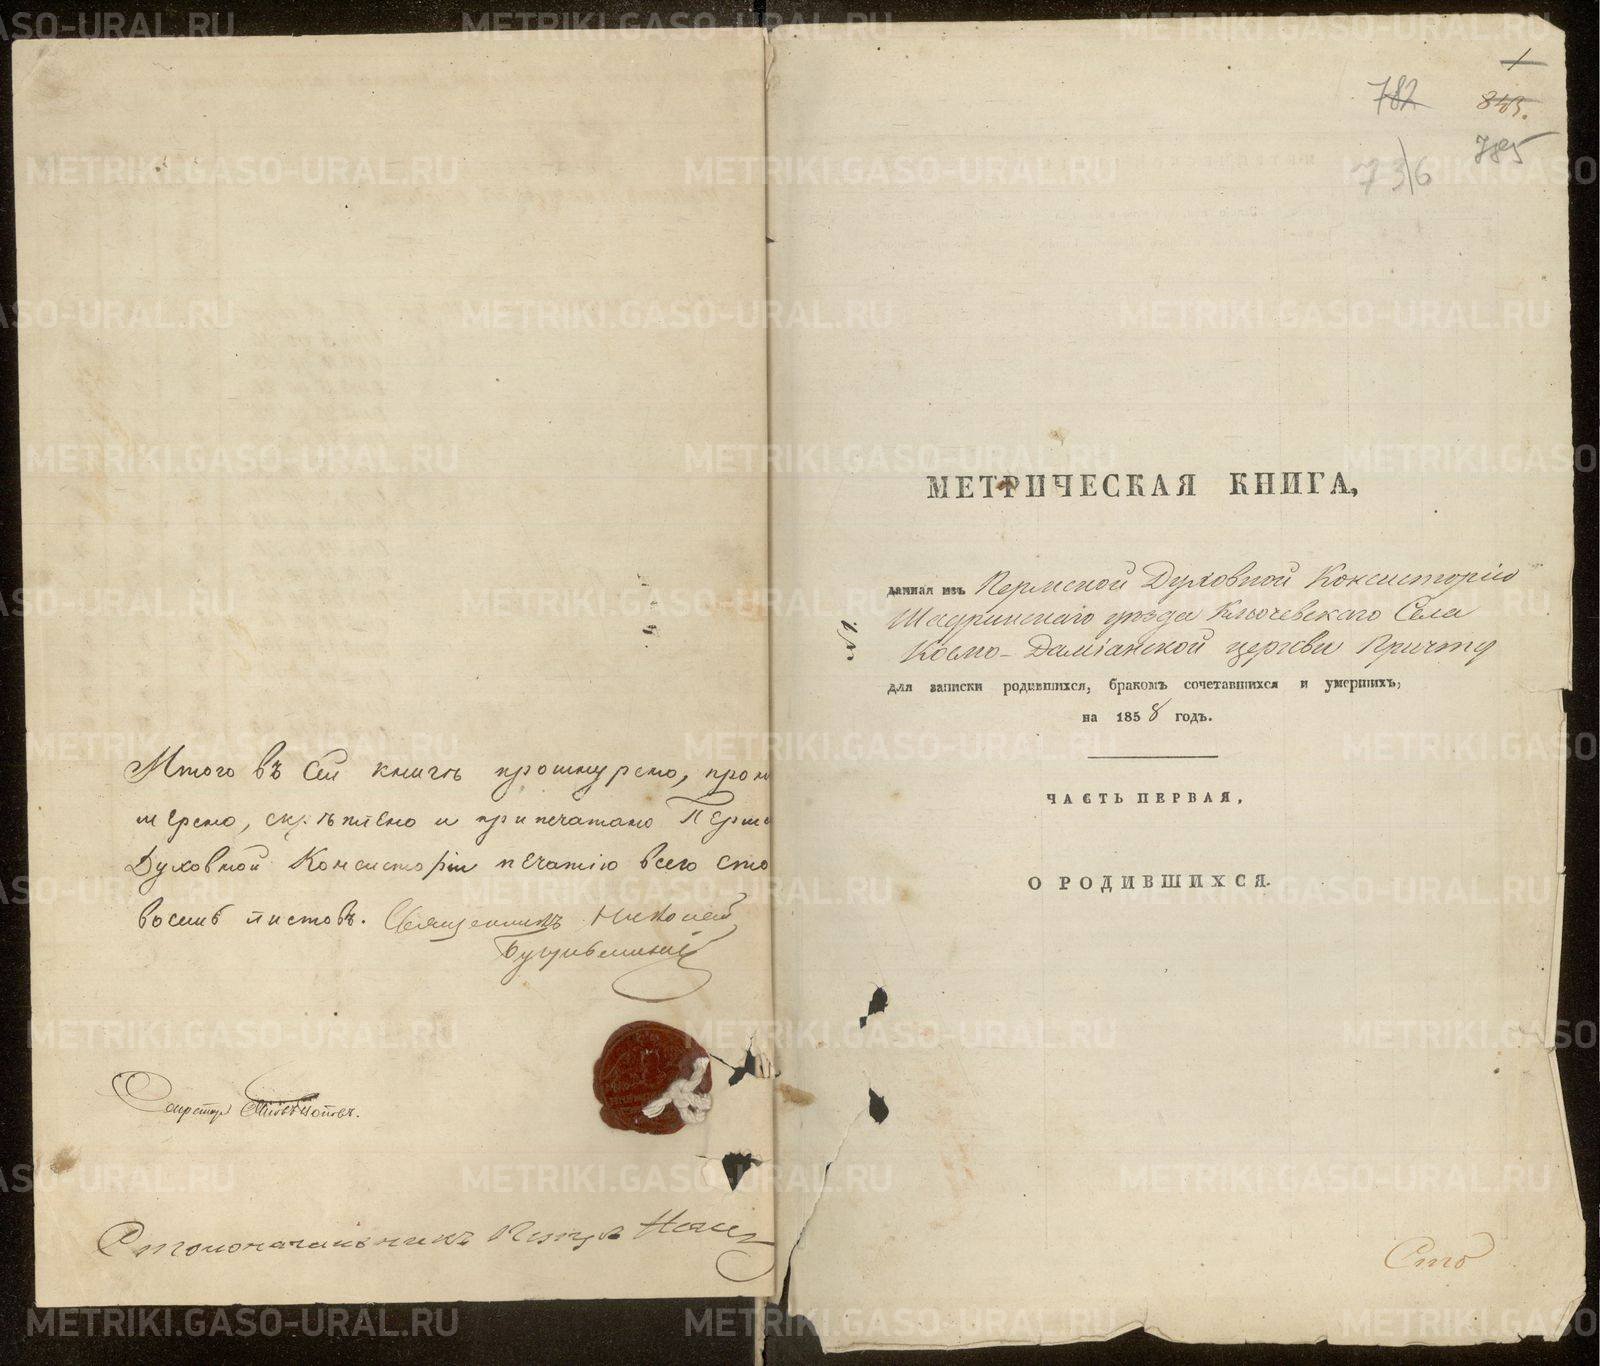 Итого въ сей книгѣ прошнурено, прону
мерено, скрѣплено и припечатано Перм
Духовной Консисторіи печатію всего сто
восемь листовъ. Священникъ Николай
Секретарь
Столоначальникъ
1
782
843.
785
73/6
МЕТРИЧЕСКАЯ КНИГА,
данная изъ Пермской Духовной Консисторіи
Шадринскаго уѣзда Ключевскаго Села
Космо-Даміанской церкви Причту
№ 1.
для записки родившихся, бракомъ сочетавшихся и умершихъ,
на 1858 годъ.
ЧАСТЬ ПЕРВАЯ,
О РОДИВШИХСЯ.
Сто
METRIKI.GASO-URAL.RU